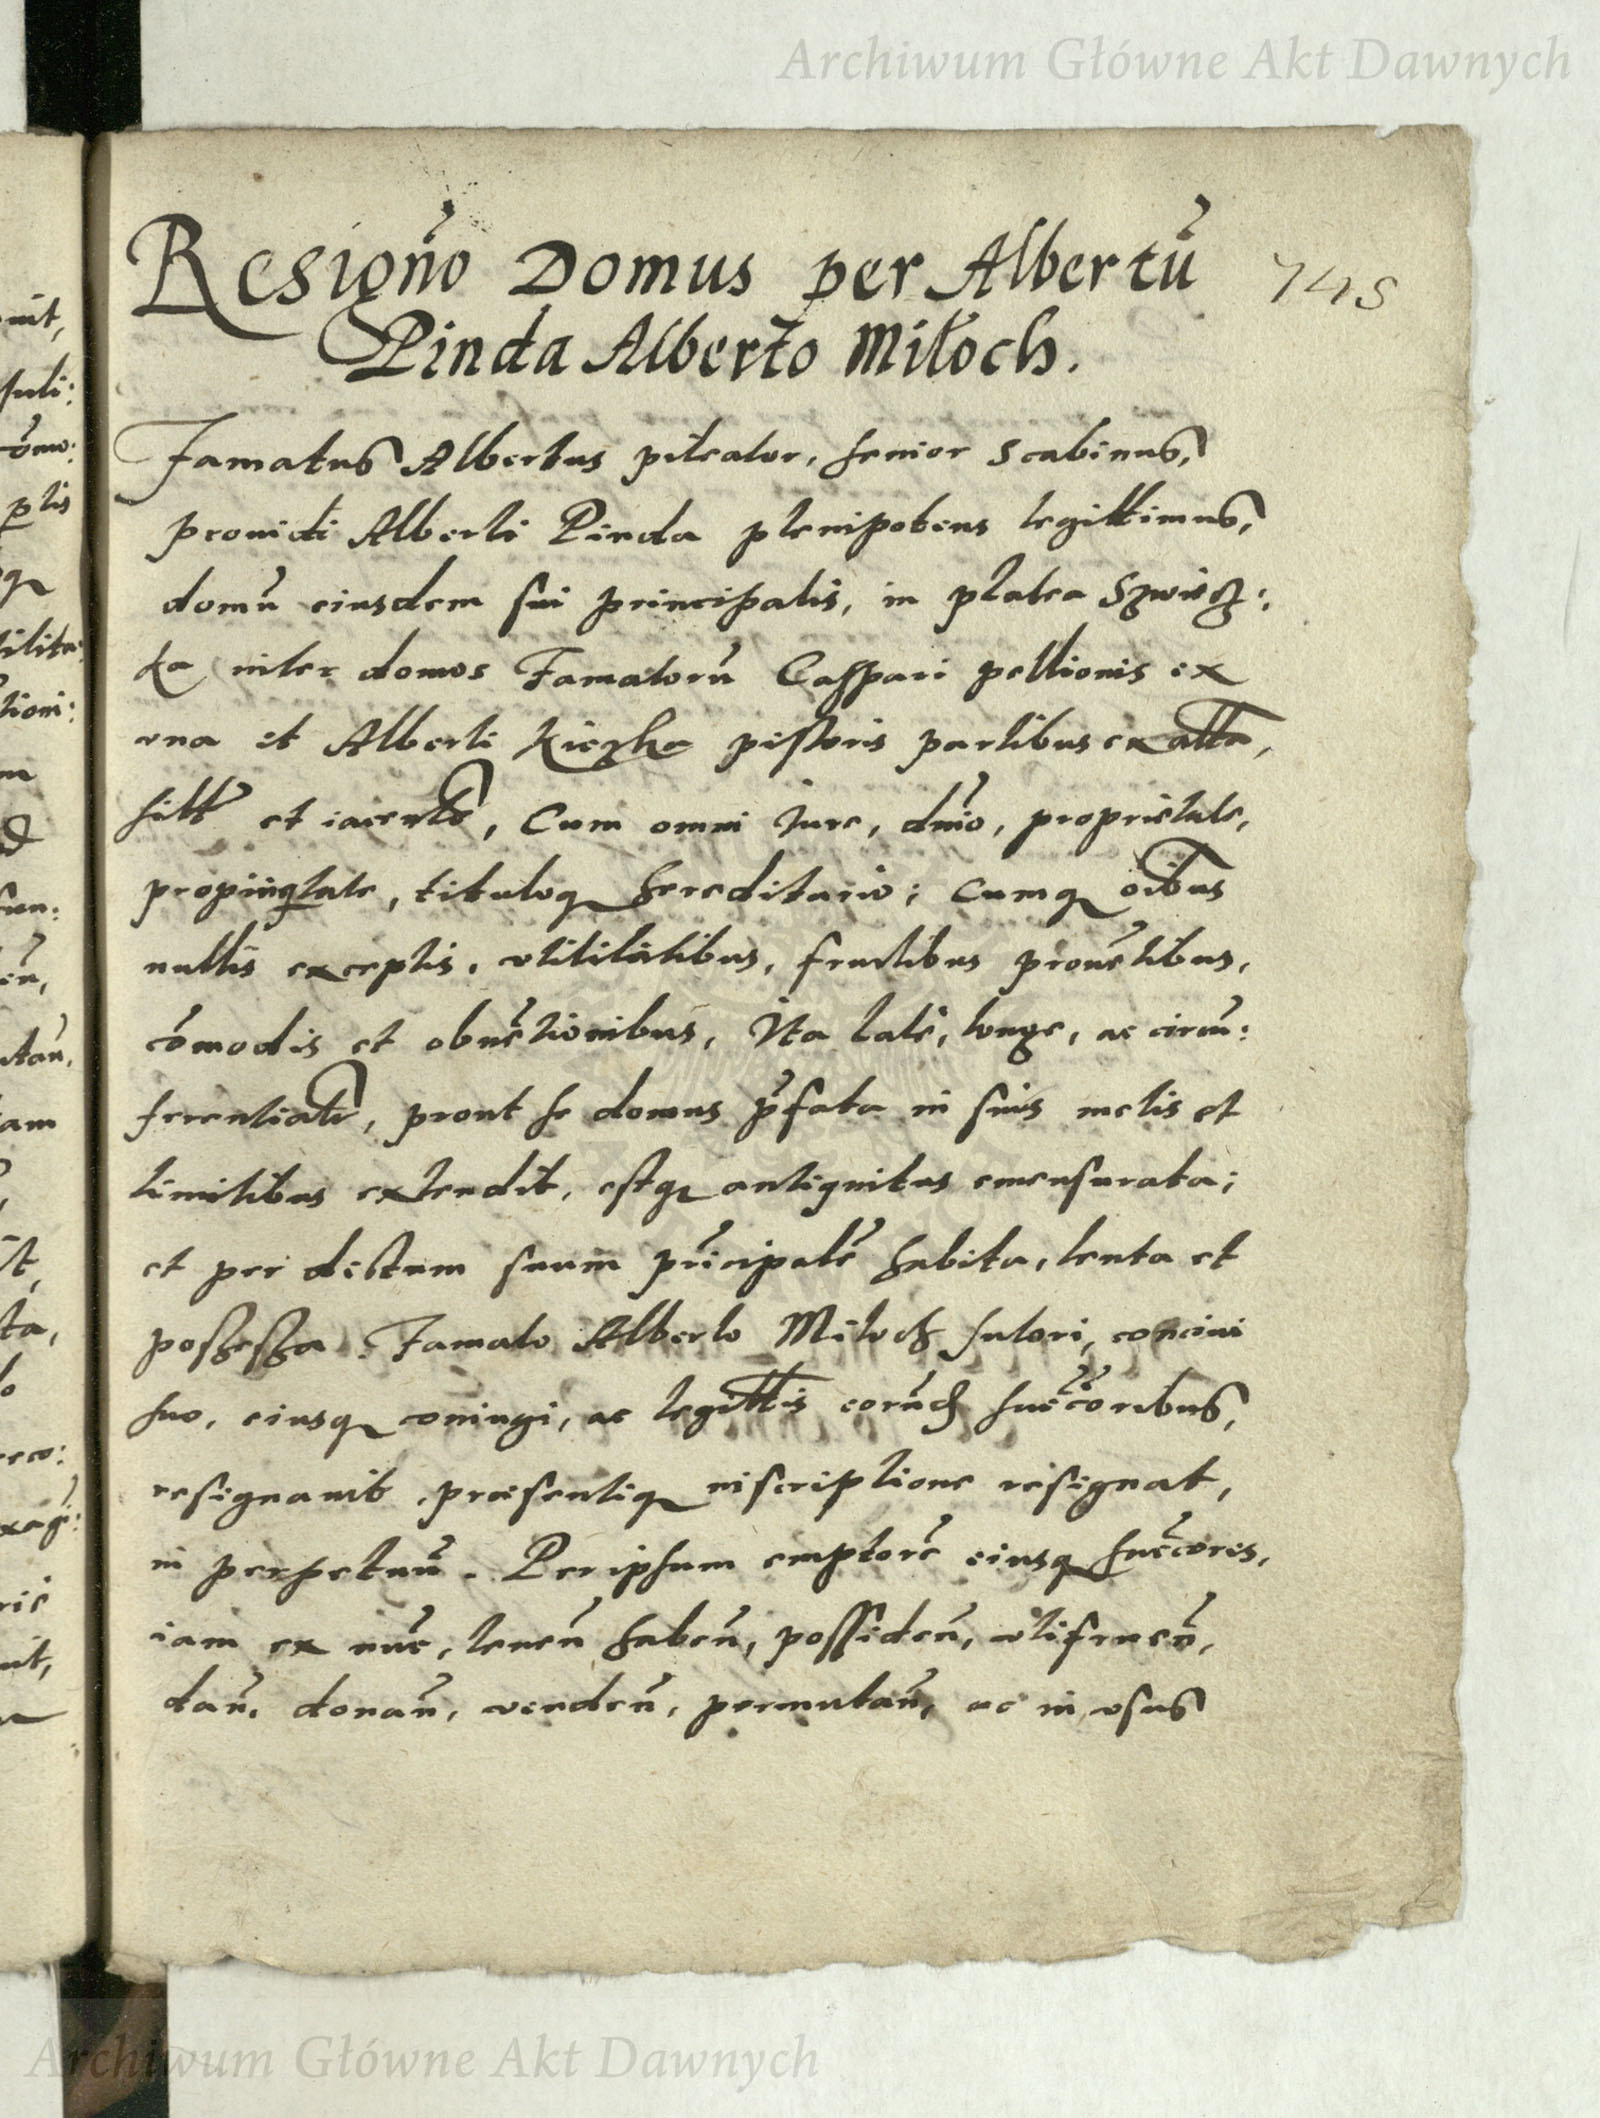 Archiwum Główne Akt Dawnych
Resigno᷃ Domus per Albertū
745
Pinda Alberto Miłoch.
Famatus Albertus pileator, senior Scabinus,
prouidi Alberti Pinda plenipotens legittimus,
domū eiusdem sui principalis, in platea Szwiecz:
ka inter domos Famatorū Casspari pellionis ex
vna et Alberti Kiczka pistoris partibus ex alta,
sitt et iacents, Cum omni iure, dnio, proprietate,
propinqtate, tituloq hereditario; Cumq oibus
nullis exceptis, vtilitatibus, fructibus prouētibus,
cōmodis et obuētionibus, Ita late, longe, ac circū:
ferentialr, prout se domus p̄fata in suis metis et
limitibus extendit, estq antiquitus emensurata;
et per dictum suum pricipalē habita, tenta et
possessa. Famato Alberto Miłoch sutori, conciui
suo, eiusq coniugi, ac legittis eorūd succcoribus,
resignauit, præsentiq inscriptione resignat,
in perpetuū. Per ipsum emptorē eiusq succcores,
iam ex nūc, tenen̄ haben̄, possiden̄, vtifruen̄,
dan̄, donan̄, venden̄, permutan̄, ac in vsus
Archiwum Główne Akt Dawnych